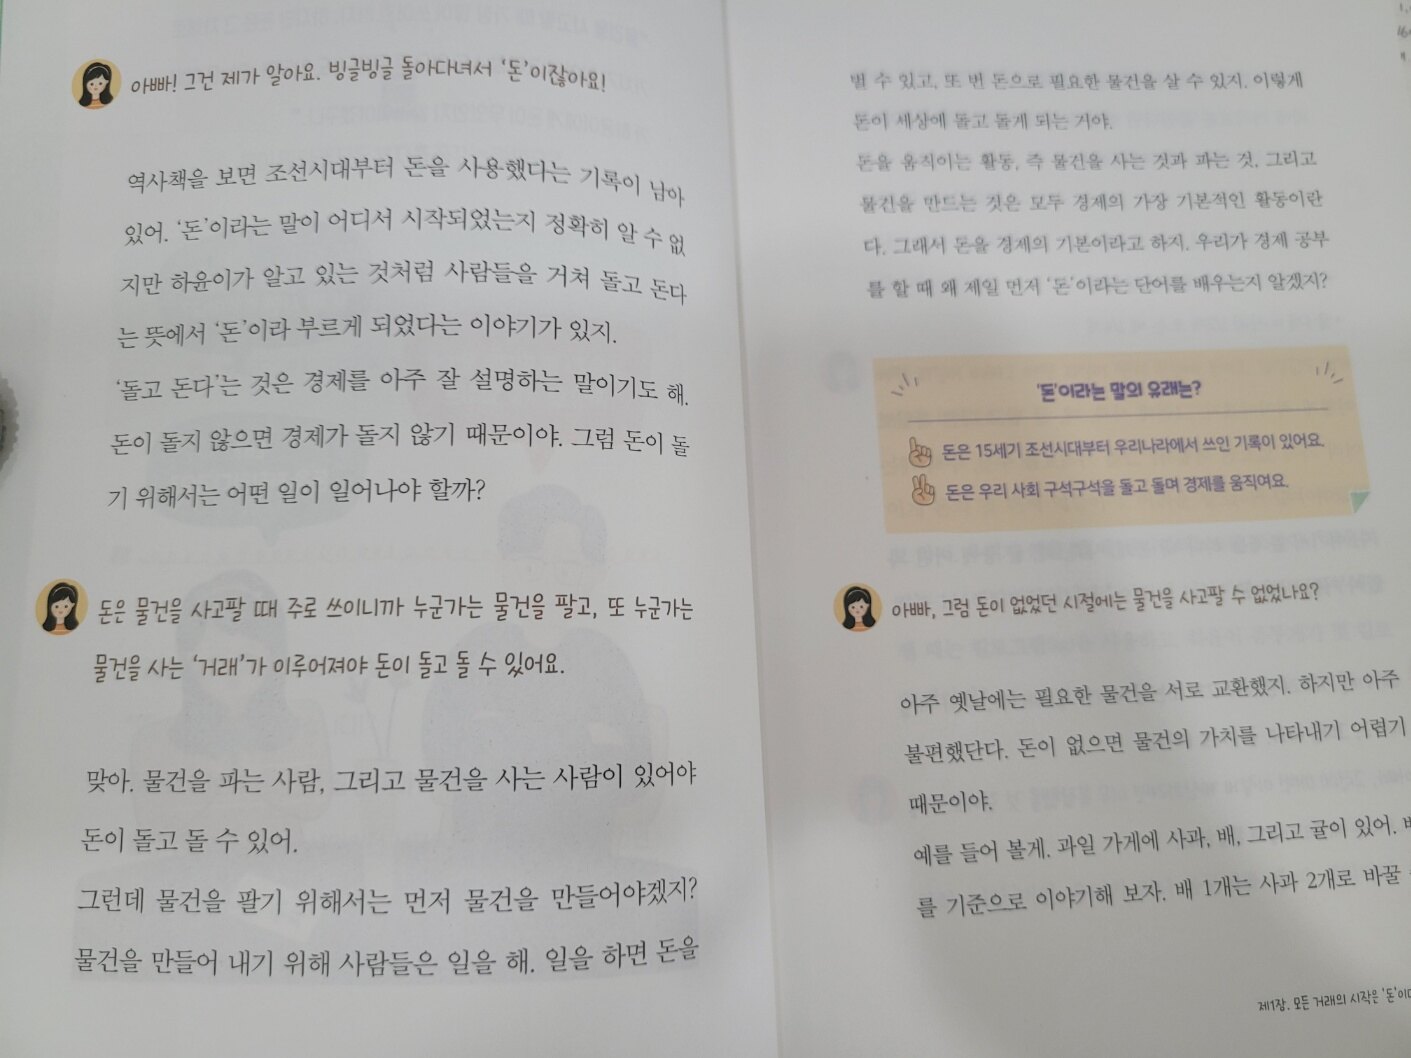 아빠! 그건 제가 알아요. 빙글빙글 돌아다녀서 ‘돈’이잖아요!
역사책을 보면 조선시대부터 돈을 사용했다는 기록이 남아
있어. ‘돈’이라는 말이 어디서 시작되었는지 정확히 알 수 없
지만 하윤이가 알고 있는 것처럼 사람들을 거쳐 돌고 돈다
는 뜻에서 ‘돈’이라 부르게 되었다는 이야기가 있지.
‘돌고 돈다’는 것은 경제를 아주 잘 설명하는 말이기도 해.
돈이 돌지 않으면 경제가 돌지 않기 때문이야. 그럼 돈이 돌
기 위해서는 어떤 일이 일어나야 할까?
돈은 물건을 사고팔 때 주로 쓰이니까 누군가는 물건을 팔고, 또 누군가는
물건을 사는 ‘거래’가 이루어져야 돈이 돌고 돌 수 있어요.
맞아. 물건을 파는 사람, 그리고 물건을 사는 사람이 있어야
돈이 돌고 돌 수 있어.
그런데 물건을 팔기 위해서는 먼저 물건을 만들어야겠지?
물건을 만들어 내기 위해 사람들은 일을 해. 일을 하면 돈을
벌 수 있고, 또 번 돈으로 필요한 물건을 살 수 있지. 이렇게
돈이 세상에 돌고 돌게 되는 거야.
돈을 움직이는 활동, 즉 물건을 사는 것과 파는 것, 그리고
물건을 만드는 것은 모두 경제의 가장 기본적인 활동이란
다. 그래서 돈을 경제의 기본이라고 하지. 우리가 경제 공부
를 할 때 왜 제일 먼저 ‘돈’이라는 단어를 배우는지 알겠지?
‘돈’이라는 말의 유래는?
돈은 15세기 조선시대부터 우리나라에서 쓰인 기록이 있어요.
돈은 우리 사회 구석구석을 돌고 돌며 경제를 움직여요.
아빠, 그럼 돈이 없었던 시절에는 물건을 사고팔 수 없었나요?
아주 옛날에는 필요한 물건을 서로 교환했지. 하지만 아주
불편했단다. 돈이 없으면 물건의 가치를 나타내기 어렵기
때문이야.
예를 들어 볼게. 과일 가게에 사과, 배, 그리고 귤이 있어.
를 기준으로 이야기해 보자. 배 1개는 사과 2개로 바꿀
제1장. 모든 거래의 시작은 ‘돈’이다